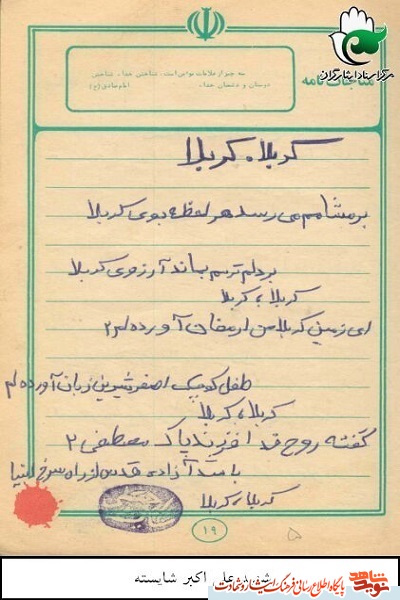 مرکز اسناد ایثارگران
مناجات نامه
سه چیز از علامات مؤمن است، شناختن خدا، شناختن
دوستان و دشمنان خدا.
امام صادق (ع)
کربلا، کربلا
بر مشامم می رسد هر لحظه بوی کربلا
بر دلم ترسم بماند آرزوی کربلا
کربلا، کربلا
ای زمین کربلا من ارمغان آورده ام ۲
طفل کوچک اصغر شیرین زبان آورده ام
کربلا، کربلا
گفته روح خدا فرزند پاک مصطفی ۲
باشد آزادی قدس از راه سرخ
کربلا، کربلا
۱۹
۵
شهید علی اکبر شایسته
نوید شاهد
پایگاه اطلاع رسانی فرهنگ ایثار و شهادت